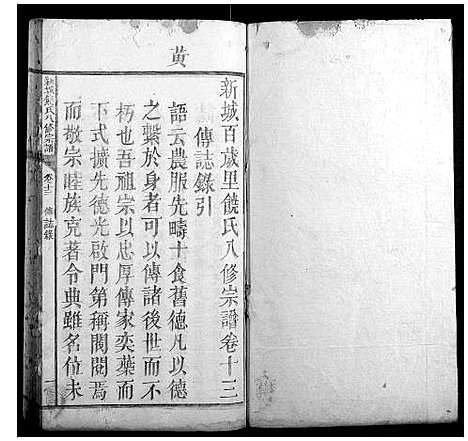 黄
新城百歲里饒氏八修宗譜卷十三
傳誌錄引
語云農服先疇士食舊德凡以德
之繫於身者可以傳諸後世而不
朽也吾祖宗以忠厚傳家奕葉而
下式擴先德光啟門第稱閥閱焉
而敬宗睦族克著令典雖名位未
新城饒氏八修宗譜
卷十三
傳誌錄
一